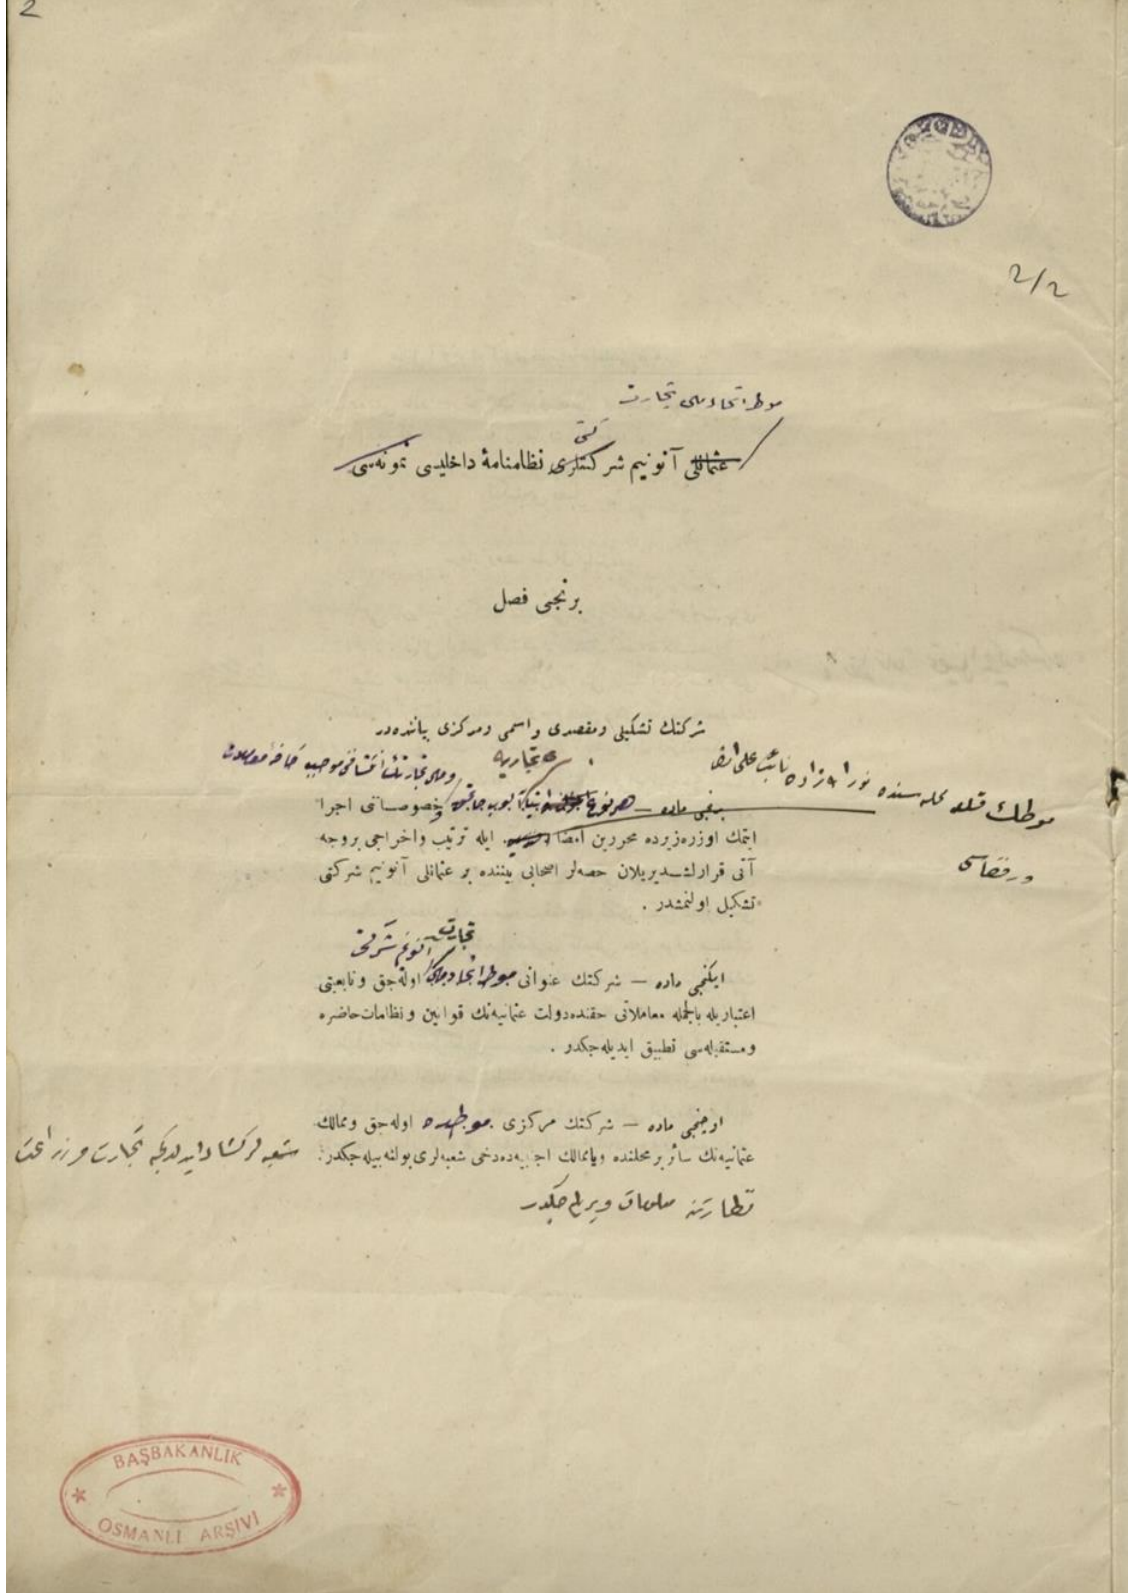 2
2/2
موطه اتحاد ملی تجارت
كتی
عثمانلی آنونیم شركتلری نظامنامهٔ داخلیسی نمونه‌سی
برنجی فصل
شركتك تشكیلی ومقصدی واسمی ومركزی بیاننده‌در
تجاریه
برنجی ماده — هر نوع خصوصاتنی اجرا
ایتمك اوزره زیرده محررین امضا ایله ترتیب واخراجی بروجه
آتی قرارلشدیریلان حصه‌لر اصحابی بیننده بر عثمانلی آنونیم شركتی
تشكیل اولنمشدر .
تجارت
آنونیم شركتی
ایكنجی ماده — شركتك عنوانی موطه اتحاد ملی اوله‌جق وتابعیتی
اعتباریله بالجمله معاملاتی حقنده دولت عثمانیه‌نك قوانین ونظامات حاضره
ومستقبله‌سی تطبیق ایدیله‌جكدر .
اوچنجی ماده — شركتك مركزی موطه‌ده اوله‌جق وممالك
عثمانیه‌نك سائر بر محلنده ویاممالك اجنبیه‌ده‌دخی شعبه‌لری بولنه‌بیله‌جكدر .
شعبه لر كشاد ایدلدكجه تجارت و زراعت
نظارتنه معلومات ویریله جكدر
BAŞBAKANLIK
OSMANLI ARŞİVİ